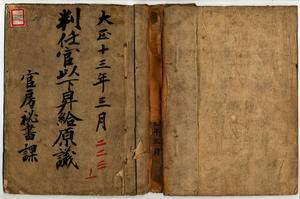 大正十三年三月
判任官以下昇給原議
官房秘書課